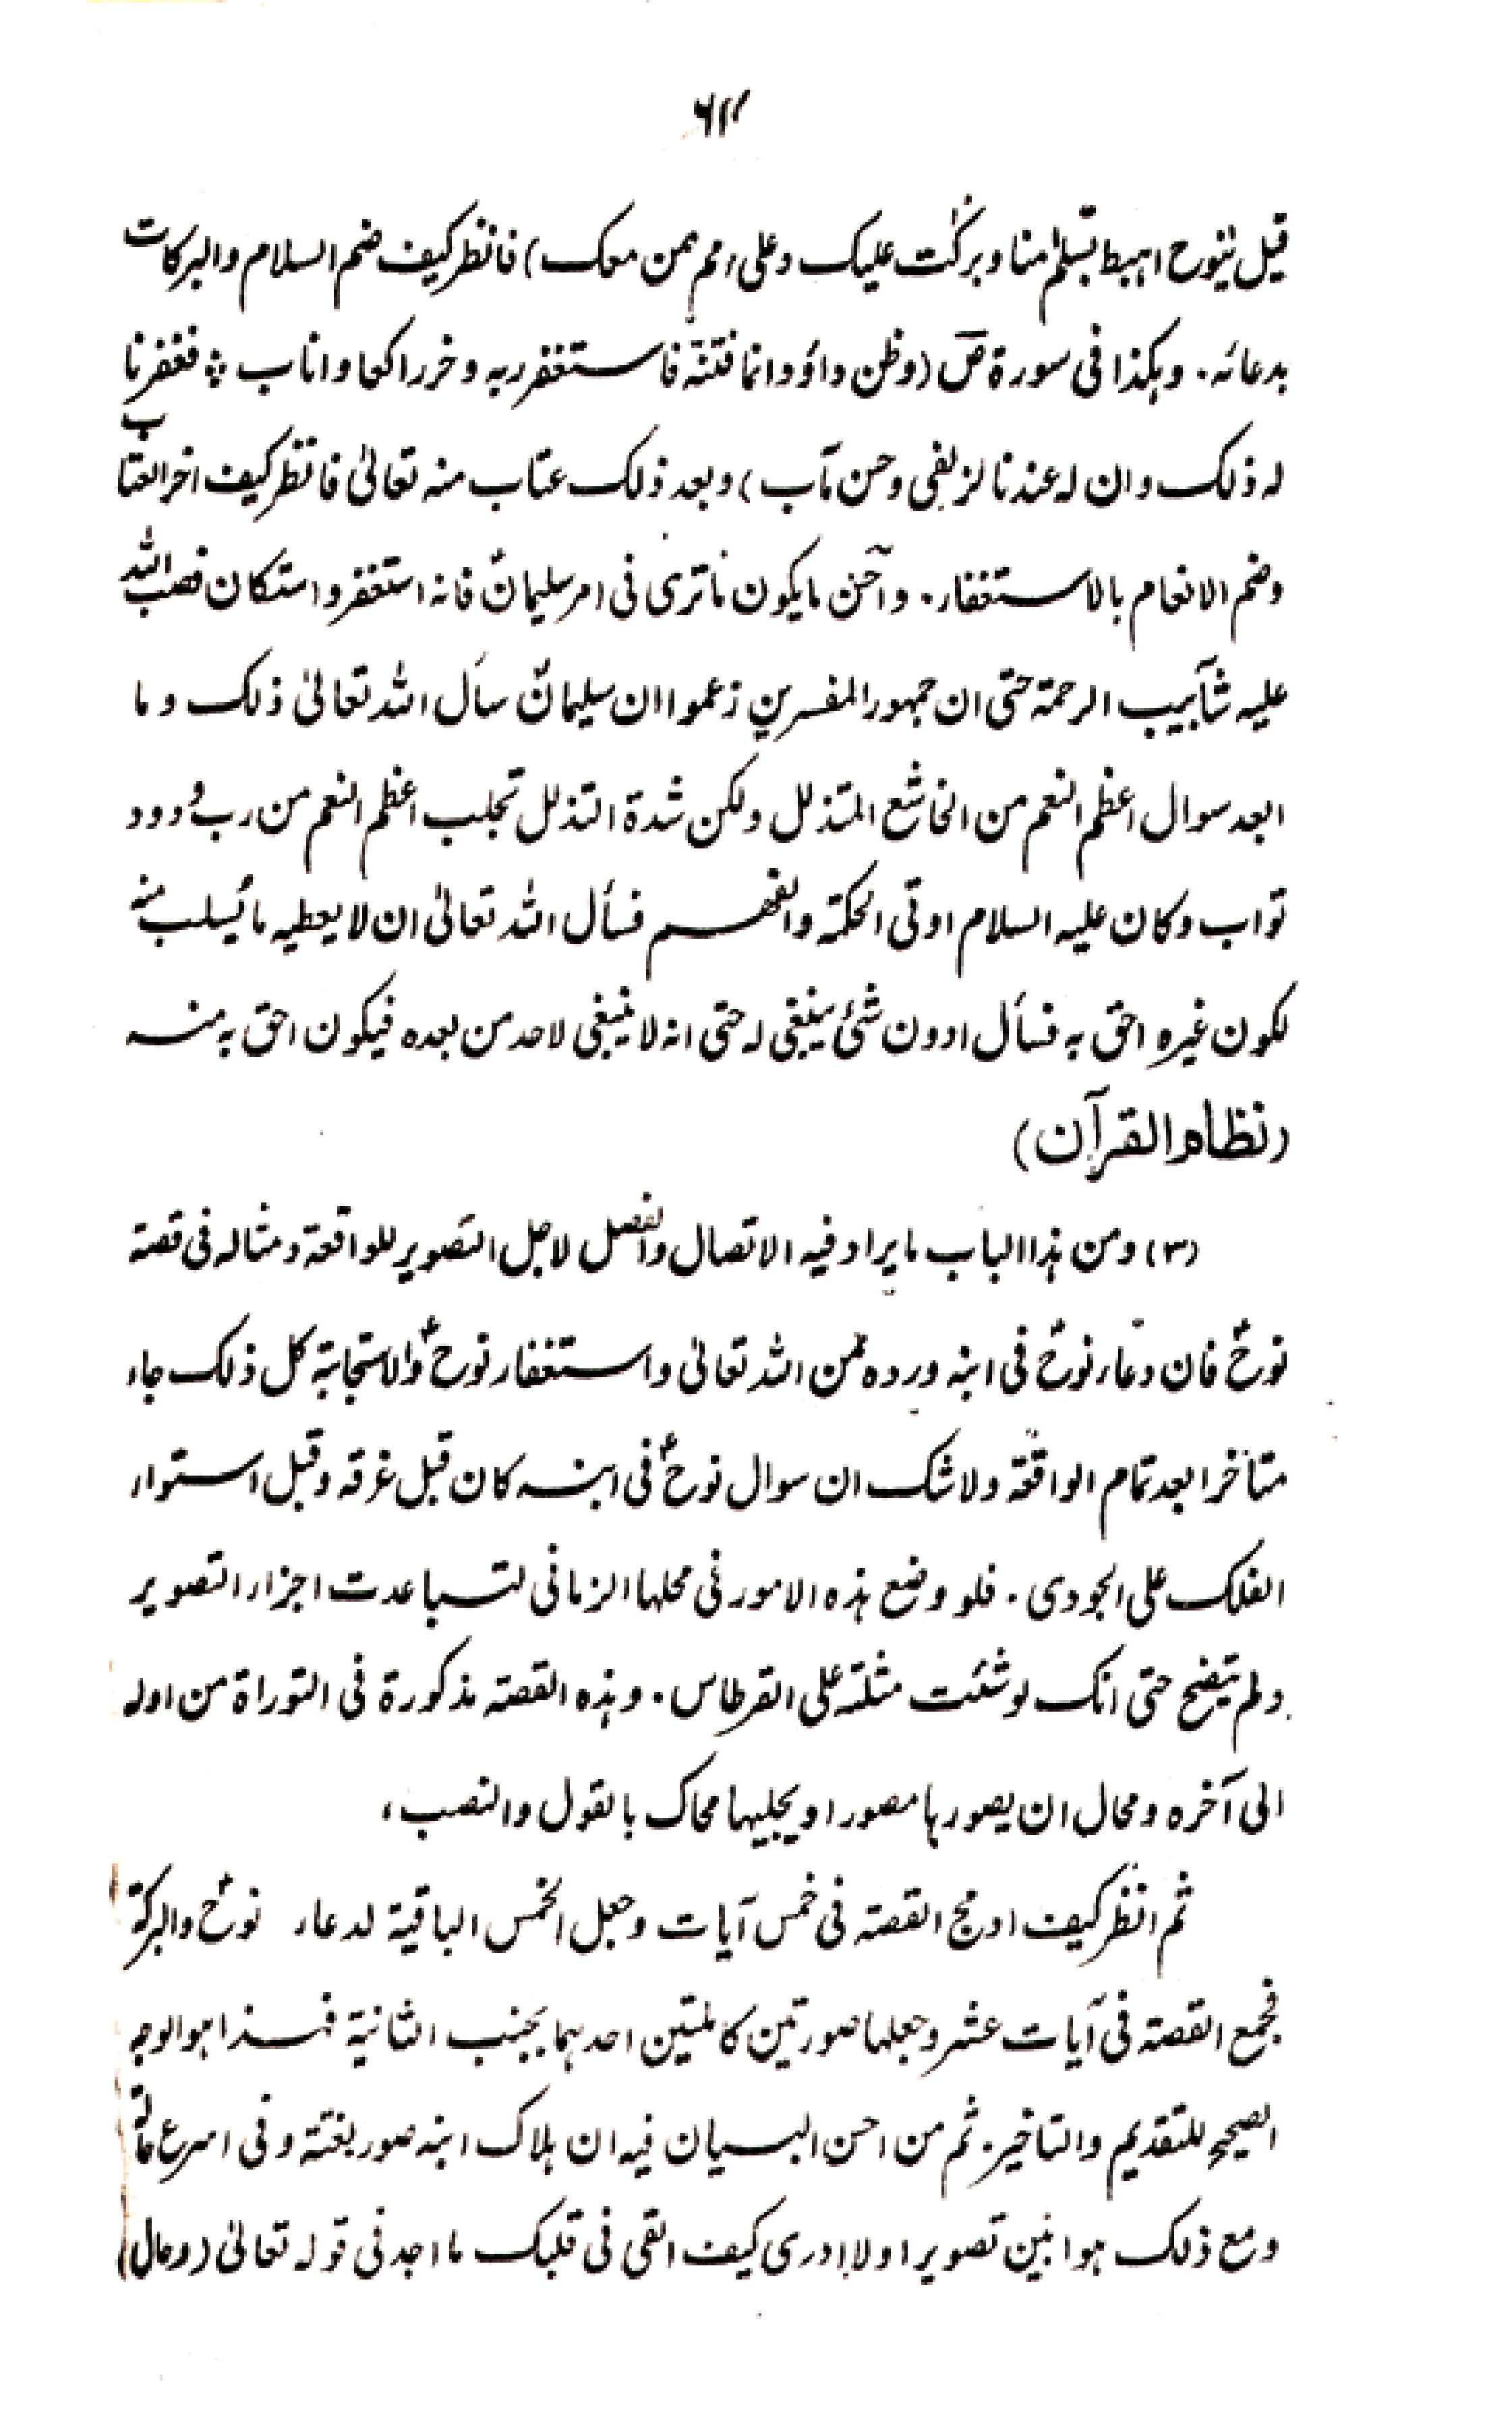 ۶۱۱
قیل ینوح اهبط بسلم منا وبرکت علیک وعلی امم ممن معک) فانظر کیف ضم السلام والبرکات
بدعائه. وهکذا فی سورة صٓ (وظن داؤد انما فتنّه فاستغفر ربه وخر راکعا واناب ؞ فغفرنا
له ذلک وان له عندنا لزلفی وحسن مآب) وبعد ذلک عتاب منه تعالیٰ فانظر کیف اخر العتاب
وضم الانعام بالاستغفار. وآحسن مایکون ماتری فی امر سلیمانؑ فانه استغفر واستکان فصب الله
علیه شآبیب الرحمة حتی ان جمهور المفسرین زعموا ان سلیمانؑ سأل الله تعالیٰ ذلک وما
ابعد سوال اعظم النعم من الخاشع المتذلل ولکن شدة التذلل تجلب اعظم النعم من رب ودود
تواب وکان علیه السلام اوتی الحکمة والفهم فسأل الله تعالیٰ ان لایعطیه مایُسلب منه
لکون غیره احق به فسأل ادون شیٔ ینبغی له حتی انه لا ینبغی لاحد من بعده فیکون احق به منه
(نظام القرآن)
(۳) ومن هذا الباب مایراد فیه الاتصال والفصل لاجل التصویر للواقعة ومثاله فی قصة
نوحؑ فان دعاء نوحؑ فی ابنه ورده من الله تعالیٰ واستغفار نوحؑ والاستجابة کل ذلک جاء
متأخرا بعد تمام الواقعة ولاشک ان سوال نوحؑ فی ابنه کان قبل غرقه وقبل استواء
الفلک علی الجودی. فلو وضع هذه الامور فی محلها الزمانی لتباعدت اجزاء التصویر
ولم یتضح حتی انک لو شئت مثلته علی القرطاس. وهذه القصة مذکورة فی التوراة من اوله
الی آخره ومحال ان یصورها مصور او یجلیها محاک بالقول والنصب،
ثم انظر کیف ادمج القصة فی خمس آیات وجعل الخمس الباقیة لدعاء نوحؑ والبرکة
فجمع القصة فی آیات عشر وجعلها صورتین کاملتین احدهما بجنب الثانیة فهذا هو الوجه
الصحیح للتقدیم والتاخیر. ثم من احسن البیان فیه ان هلاک ابنه صور بغتة وفی اسرع مایأتی
ومع ذلک هو ابین تصویر اولا ادری کیف القی فی قلبک ما اجد فی قوله تعالیٰ (وحال)